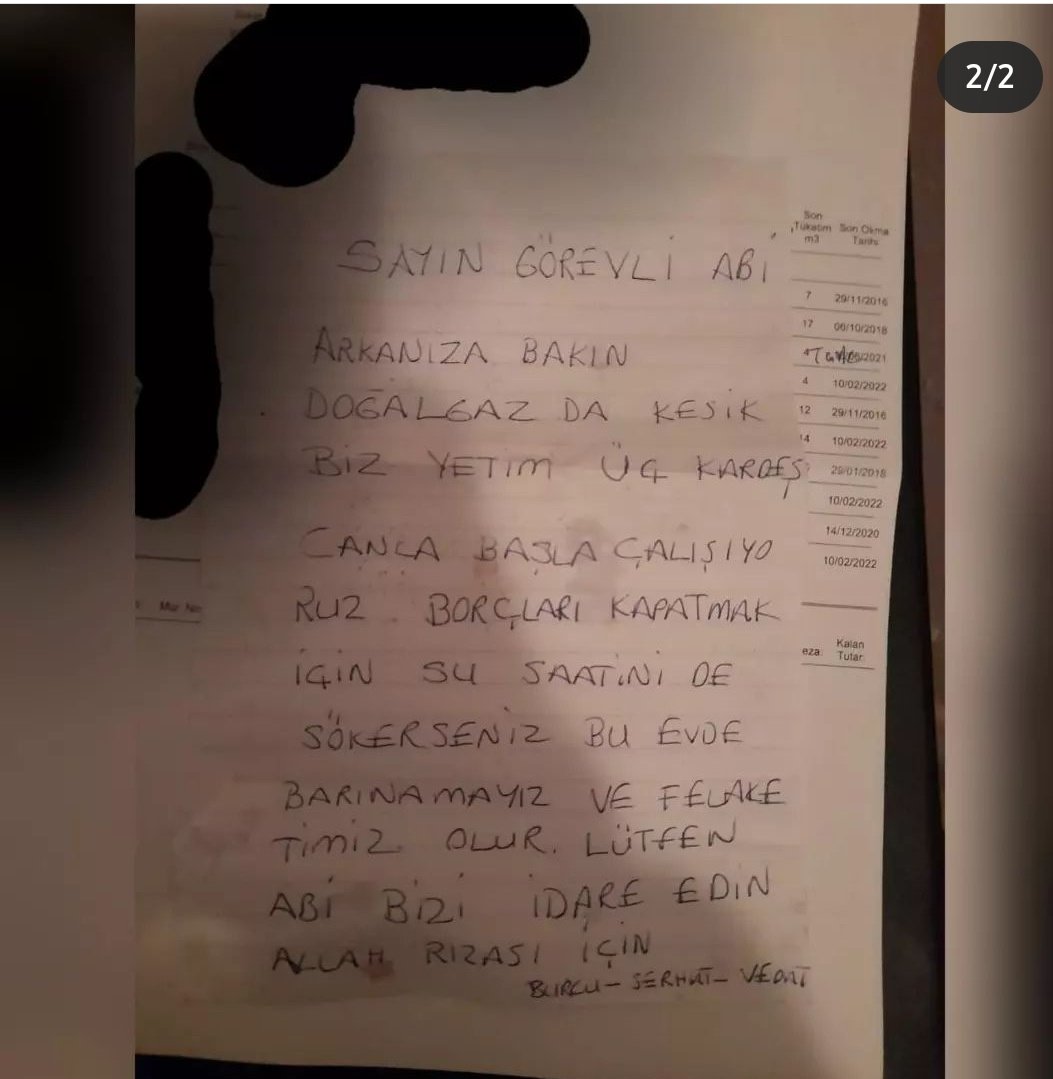 2/2
Son
Tüketim
m3
Son Okma
Tarihi
SAYIN GÖREVLİ ABİ
7 29/11/2016
17 06/10/2018
ARKANIZA BAKIN
2021
4 10/02/2022
DOĞALGAZ DA KESİK
12 29/11/2016
14 10/02/2022
BİZ YETİM ÜÇ KARDEŞ
29/01/2018
10/02/2022
14/12/2020
CANLA BAŞLA ÇALIŞIYO
10/02/2022
RUZ. BORÇLARI KAPATMAK
Mur No
eza
Kalan
Tutar
İÇİN SU SAATİNİ DE
SÖKERSENİZ BU EVDE
BARINAMAYIZ VE FELAKE
TİMİZ OLUR. LÜTFEN
ABİ BİZİ İDARE EDİN
ALLAH RIZASI İÇİN
BURCU - SERHAT - VEDAT